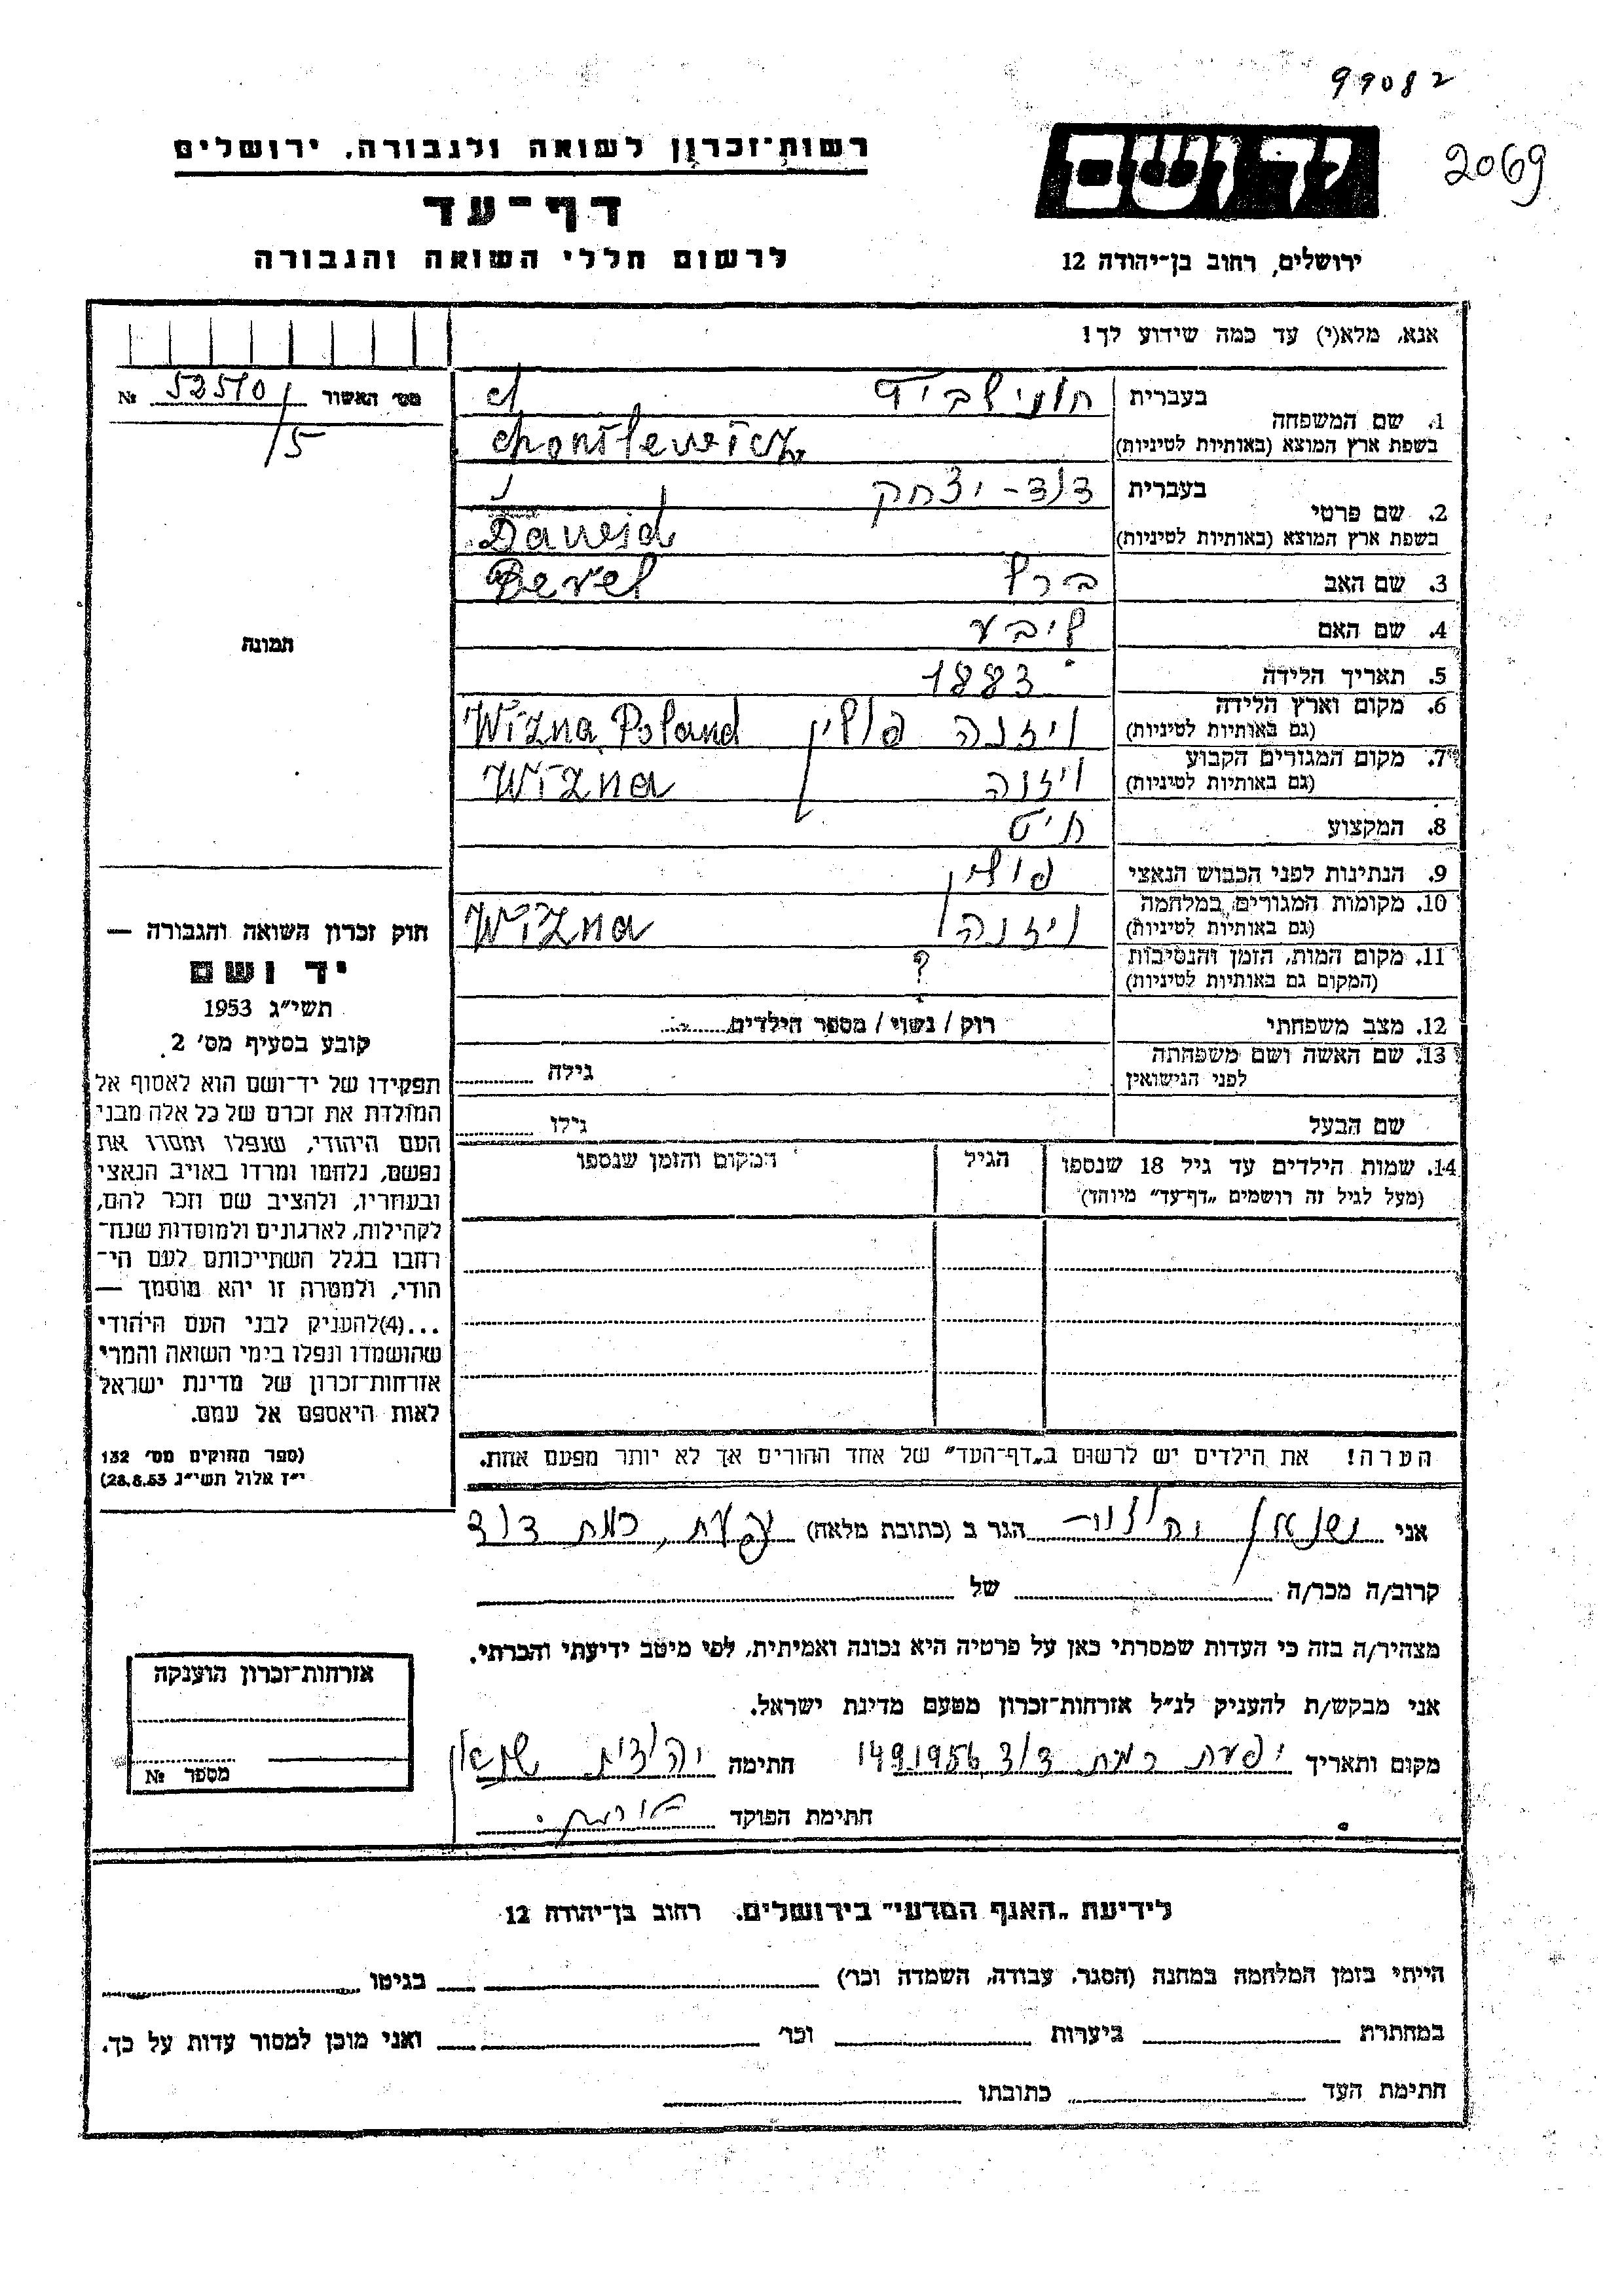 99082
2069
רשות־זכרון לשואה ולגבורה, ירושלים
דף־עד
לרשום חללי השואה והגבורה
יד ושם
ירושלים, רחוב בן־יהודה 12
אנא, מלא(י) עד כמה שידוע לך!
מס׳ האשור 52510/5 №
1. שם המשפחה
בעברית
בשפת ארץ המוצא (באותיות לטיניות)
2. שם פרטי
בעברית דוד - יצחק
בשפת ארץ המוצא (באותיות לטיניות) Daweid
3. שם האב ברל Berel
4. שם האם ליבע
5. תאריך הלידה 1883
6. מקום וארץ הלידה ויזנה פולין Wizna Poland
(גם באותיות לטיניות)
7. מקום המגורים הקבוע ויזנה Wizna
(גם באותיות לטיניות)
8. המקצוע חיט
9. הנתינות לפני הכבוש הנאצי פולין
10. מקומות המגורים במלחמה ויזנה Wizna
(גם באותיות לטיניות)
11. מקום המות, הזמן והנסיבות ?
(המקום גם באותיות לטיניות)
12. מצב משפחתי רווק / נשוי / מספר הילדים
13. שם האשה ושם משפחתה
לפני הנישואין
גילה
שם הבעל
גילו
14. שמות הילדים עד גיל 18 שנספו
(מעל לגיל זה רושמים „דף־עד” מיוחד)
הגיל
המקום והזמן שנספו
הערה! את הילדים יש לרשום ב„דף־העד” של אחד ההורים אך לא יותר מפעם אחת.
תמונה
חוק זכרון השואה והגבורה —
יד ושם
תשי״ג 1953
קובע בסעיף מס׳ 2
תפקידו של יד־ושם הוא לאסוף אל
המולדת את זכרם של כל אלה מבני
העם היהודי, שנפלו ומסרו את
נפשם, נלחמו ומרדו באויב הנאצי
ובעוזריו, ולהציב שם וזכר להם,
לקהילות, לארגונים ולמוסדות שנח־
רבו בגלל השתייכותם לעם הי־
הודי, ולמטרה זו יהא מוסמך —
...(4)להעניק לבני העם היהודי
שהושמדו ונפלו בימי השואה והמרי
אזרחות־זכרון של מדינת ישראל
לאות היאספם אל עמם.
(ספר החוקים מס׳ 132
י״ז אלול תשי״ג 28.8.53)
אני הגר ב (כתובת מלאה) רמת דוד
קרוב/ה מכר/ה של
מצהיר/ה בזה כי העדות שמסרתי כאן על פרטיה היא נכונה ואמיתית, לפי מיטב ידיעתי והכרתי.
אני מבקש/ת להעניק לנ״ל אזרחות־זכרון מטעם מדינת ישראל.
מקום ותאריך יפעת רמת דוד 14 9 1956 חתימה
חתימת הפוקד
אזרחות־זכרון הוענקה
מספר №
לידיעת „האגף המדעי” בירושלים, רחוב בן־יהודה 12
הייתי בזמן המלחמה במחנה (הסגר, עבודה, השמדה וכו׳) בגיטו
במחתרת ביערות וכו׳ ואני מוכן למסור עדות על כך.
חתימת העד כתובתו